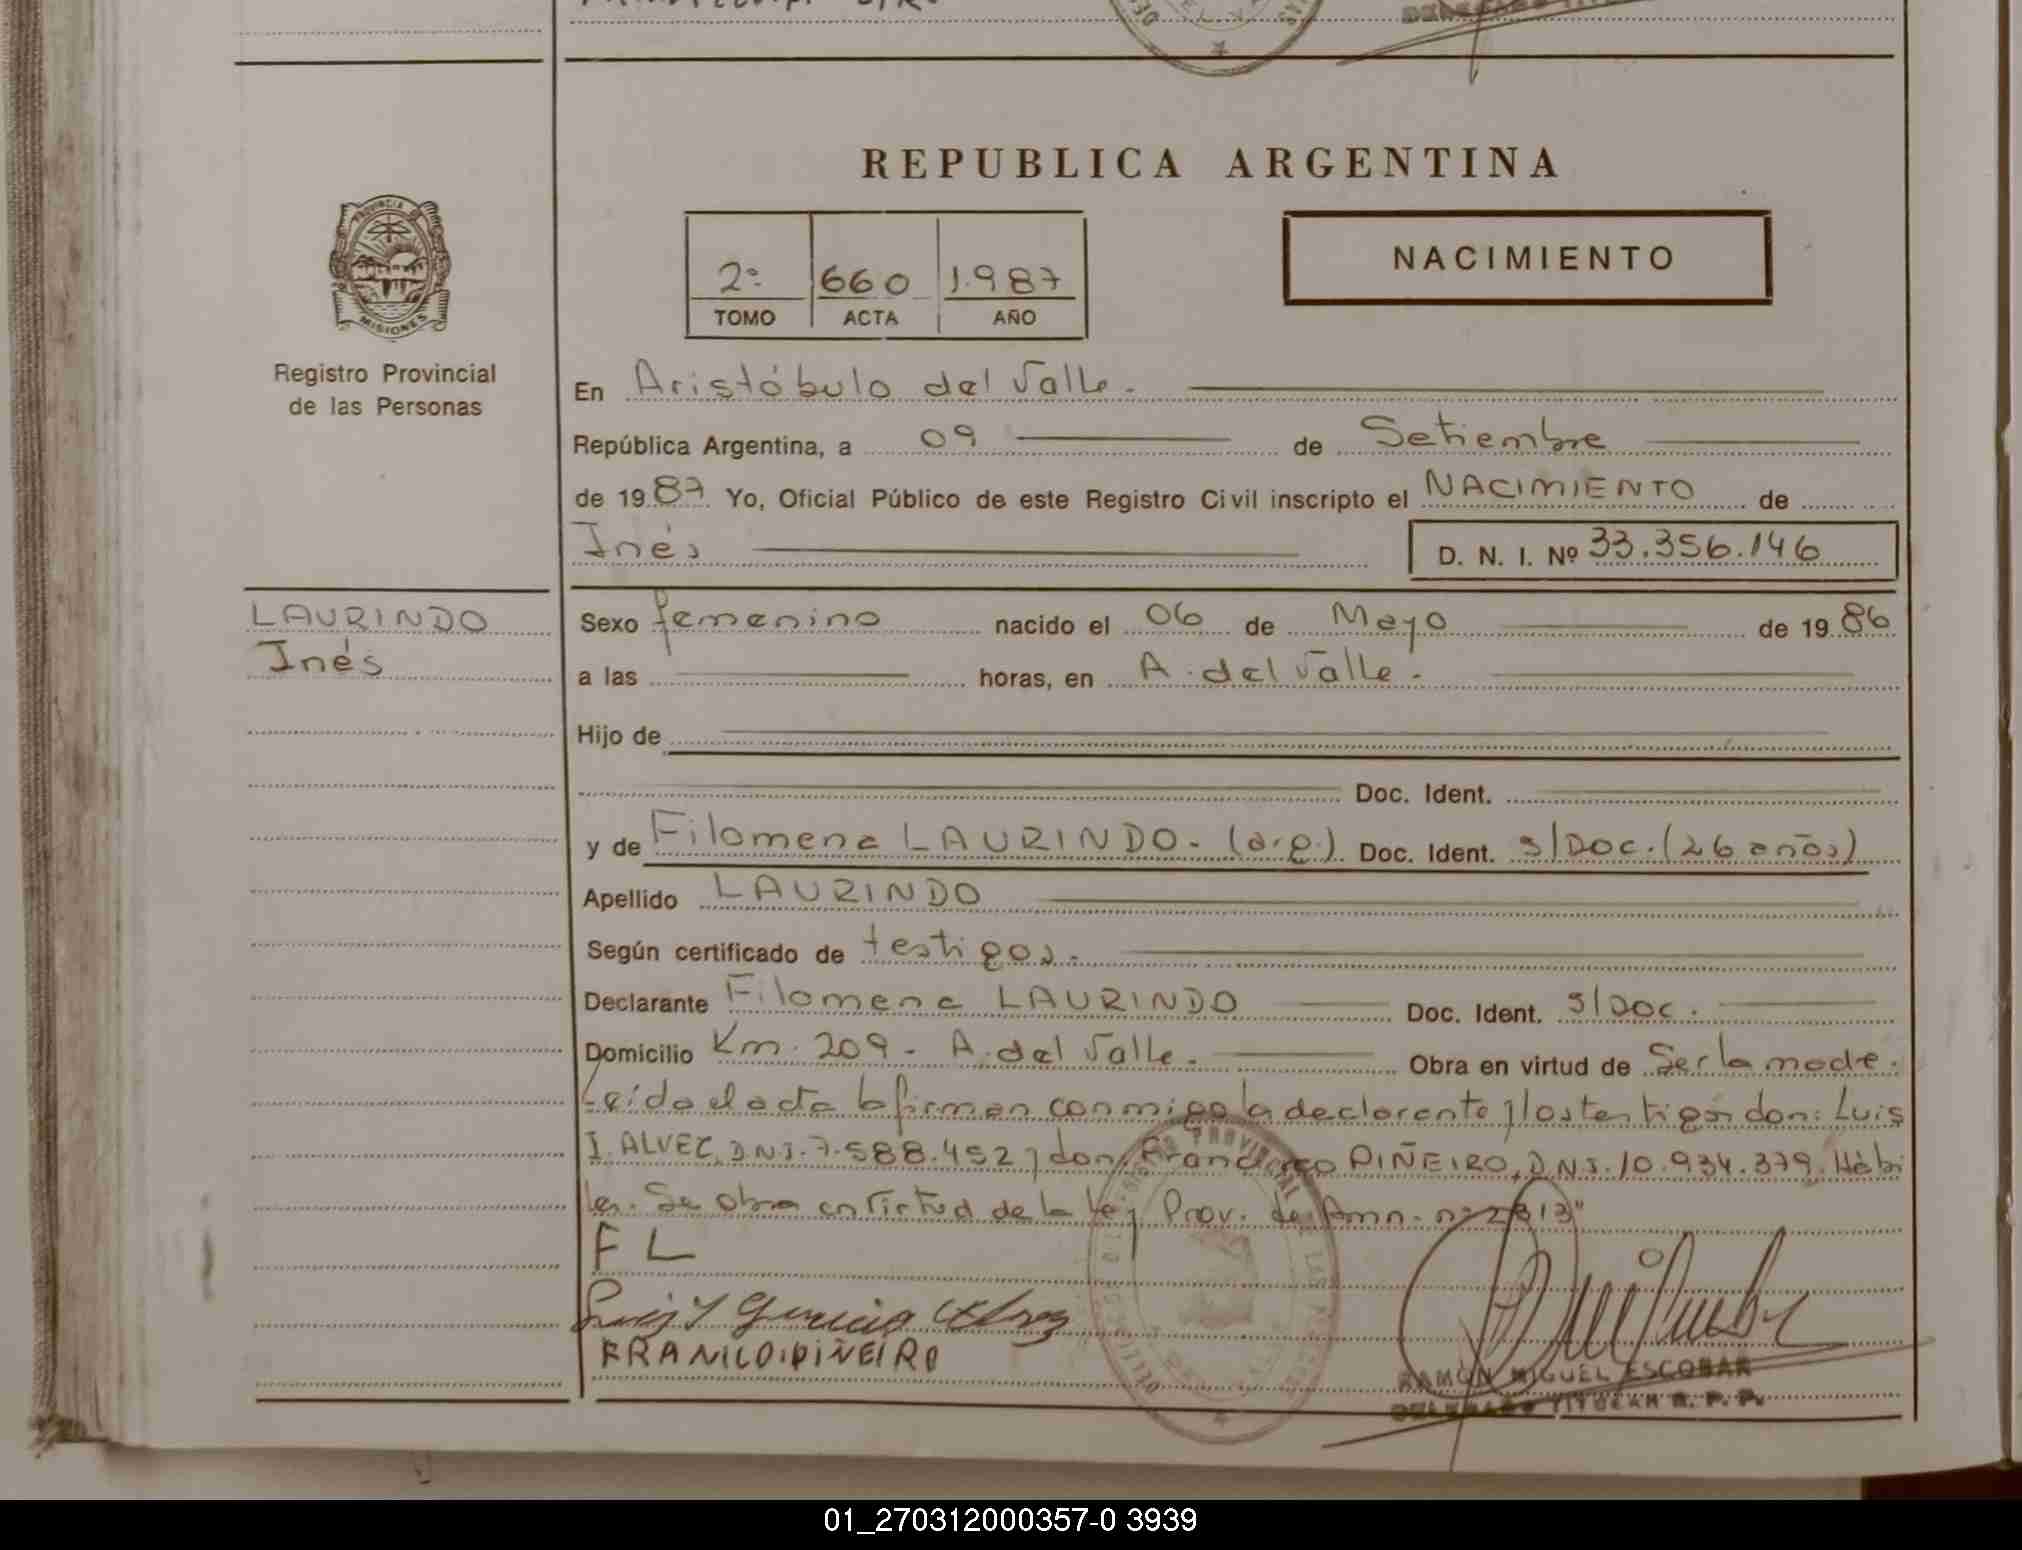 REPUBLICA ARGENTINA
PROVINCIA DE
MISIONES
Registro Provincial
de las Personas
2º 660 1.987
TOMO ACTA AÑO
NACIMIENTO
En Aristóbulo del Valle.
República Argentina, a 09 de Setiembre
de 1987 Yo, Oficial Público de este Registro Civil inscripto el NACIMIENTO de
Inés D. N. I. Nº 33.356.146
LAURINDO
Inés
Sexo femenino nacido el 06 de Mayo de 1986
a las horas, en A. del Valle.
Hijo de
Doc. Ident.
y de Filomena LAURINDO. (arg.) Doc. Ident. s/Doc. (26 años)
Apellido LAURINDO
Según certificado de testigos.
Declarante Filomena LAURINDO Doc. Ident. s/Doc.
Domicilio Km. 209 - A. del Valle. Obra en virtud de Ser la madre.
Leída el acta la firman conmigo la declarante y los testigos don: Luis
I. ALVEZ, D.N.I. 7.588.452 y don Francisco PIÑEIRO, D.N.I. 10.934.379. Hábi
les. Se obra en virtud de la Ley Prov. de Amn. nº 2813"
F L
Luis Y Garcia Alvez
FRANCO PIÑEIRO
RAMÓN MIGUEL ESCOBAR
DELEGADO TITULAR R. P. P.
01_270312000357-0 3939